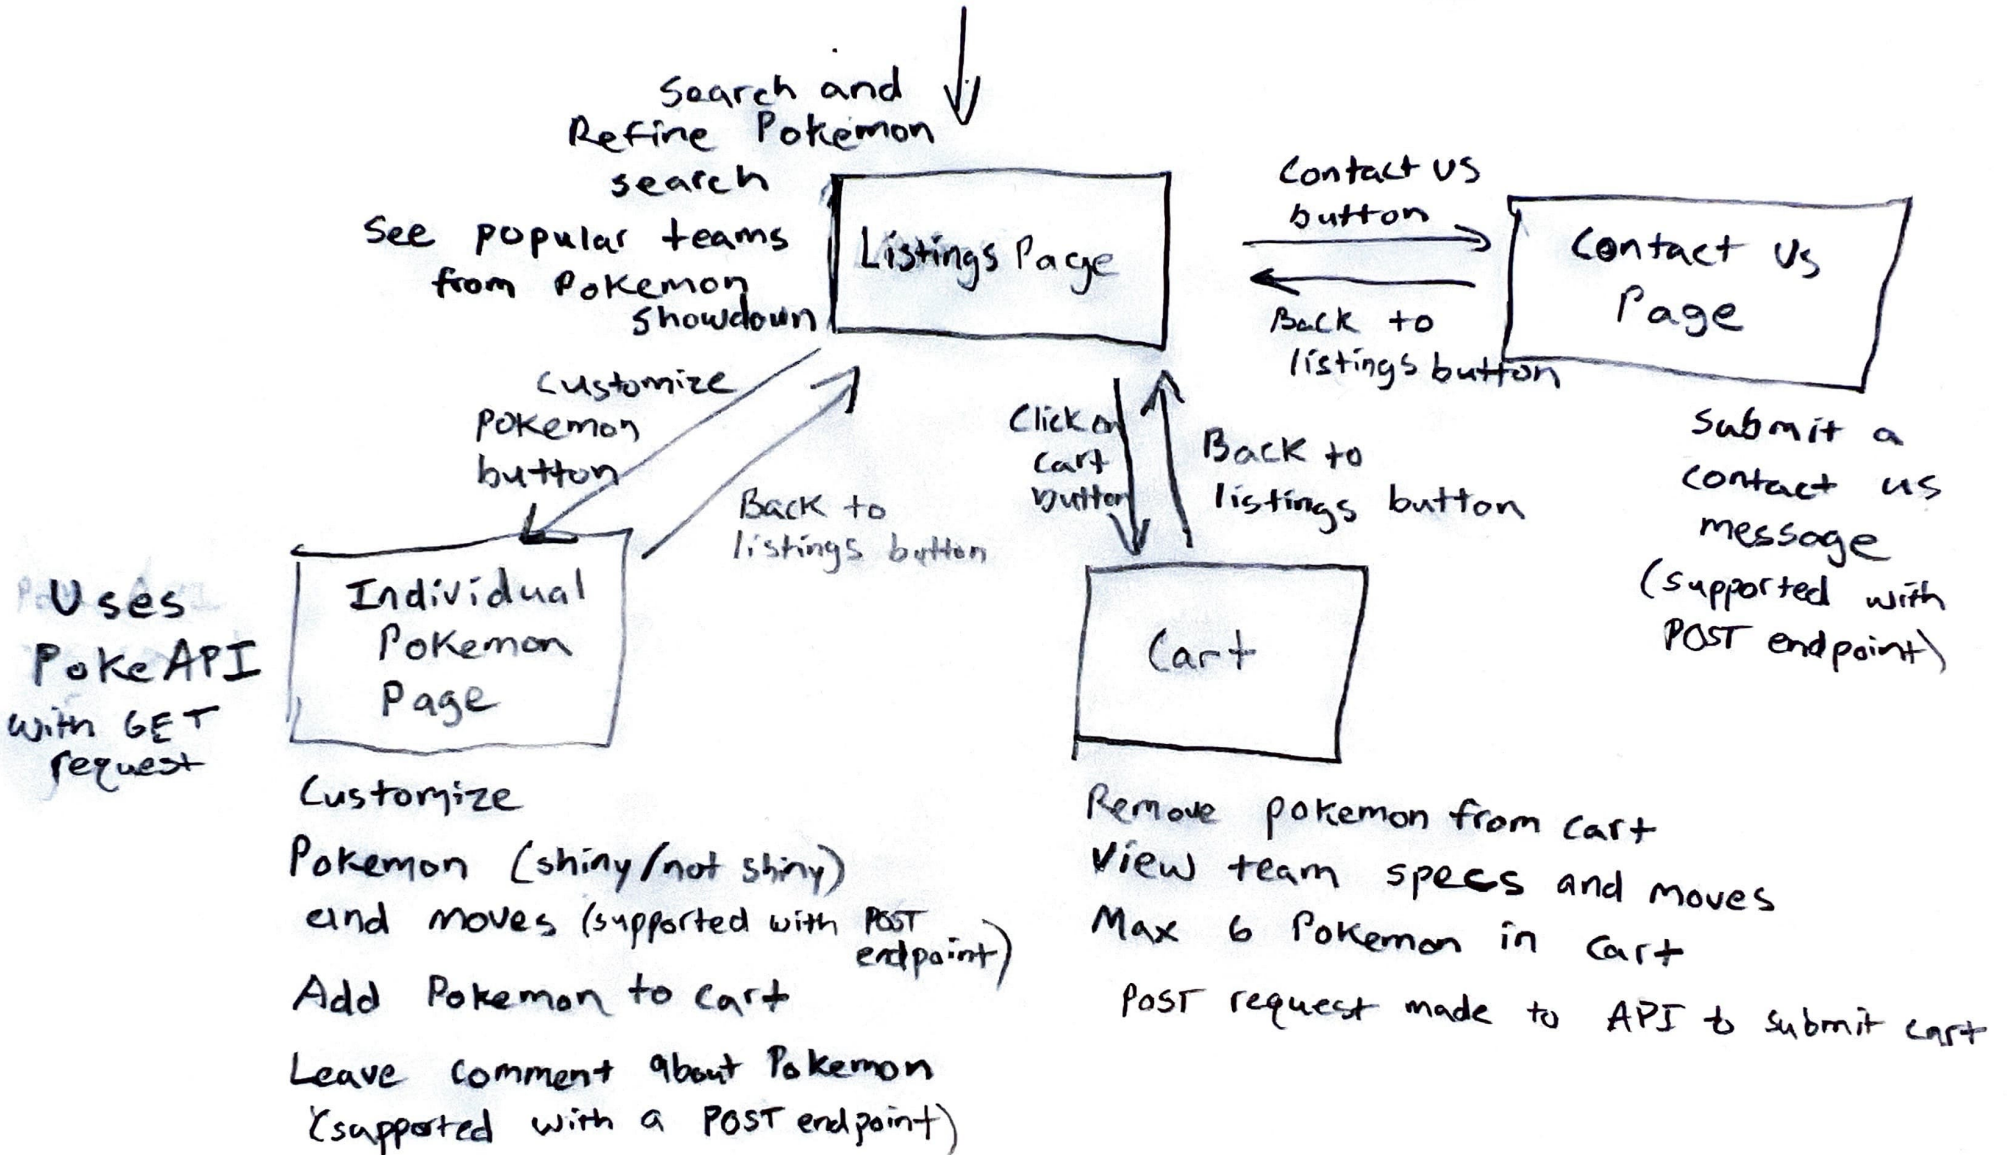 Search and
Refine Pokemon
search
See popular teams
from Pokemon
Showdown
Listings Page
Contact US
button
Back to
listings button
Contact Us
Page
Submit a
contact us
message
(supported with
POST endpoint)
Customize
Pokemon
button
Back to
listings button
Click on
Cart
button
Back to
listings button
Uses
PokeAPI
with GET
request
Individual
Pokemon
Page
Customize
Pokemon (shiny/not shiny)
and moves (supported with POST
endpoint)
Add Pokemon to cart
Leave comment about Pokemon
(supported with a POST endpoint)
Cart
Remove pokemon from cart
View team specs and moves
Max 6 Pokemon in cart
POST request made to API to submit cart